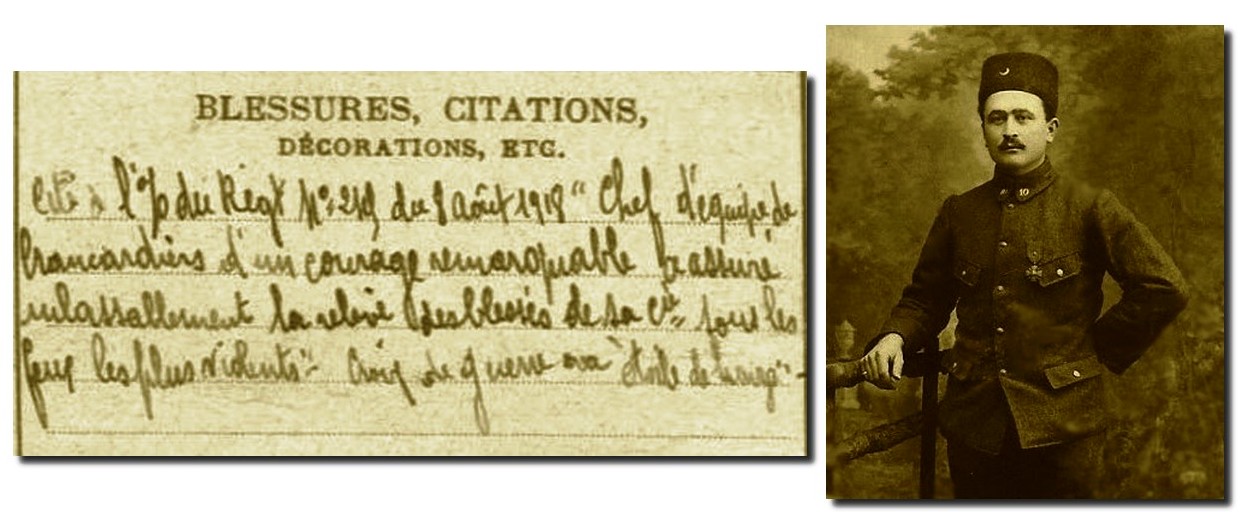 BLESSURES, CITATIONS,
DÉCORATIONS, ETC.
Cité à l'O du Régt N° 249 du 8 août 1918 " Chef d'équipe de
brancardiers d'un courage remarquable a assuré
inlassablement la relève des blessés de sa Cie sous les
feux les plus violents " Croix de guerre étoile de bronze
10